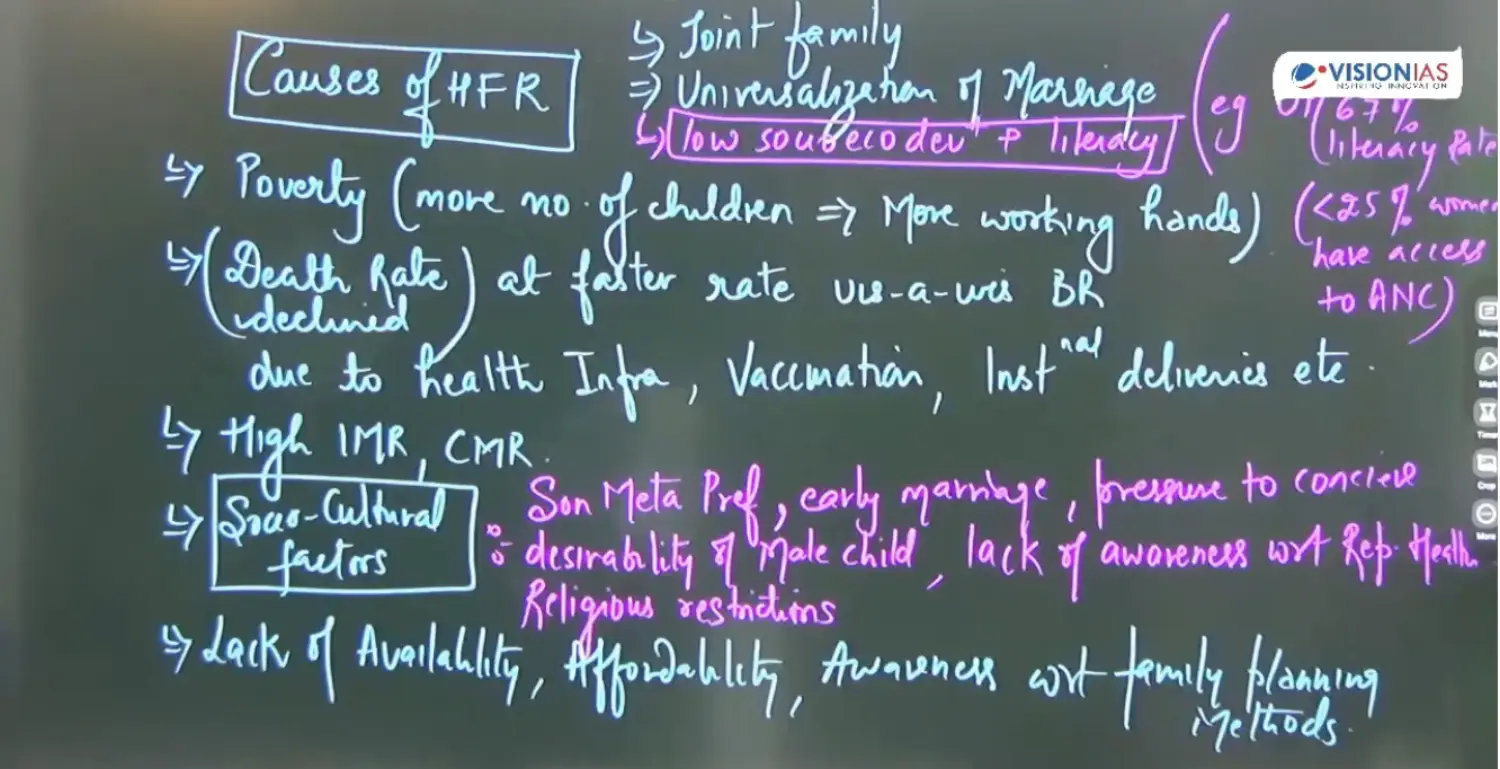 Causes of HFR
↳ Joint family
⇒ Universalization of Marriage
↳ low soci&eco devt + literacy
(eg 67%
literacy Rate
(<25% women
have access
to ANC)
↳ Poverty (more no. of children ⇒ More working hands)
↳ (Death Rate declined) at faster rate vis-a-vis BR
due to health Infra, Vaccination, Instnal deliveries etc.
↳ High IMR, CMR.
↳ Socio-Cultural factors
: Son Meta Pref, early marriage, pressure to concieve
desirability of Male child, lack of awareness wrt Rep. Health
Religious restrictions
↳ Lack of Availability, Affordability, Awareness wrt family planning
Methods.
VISIONIAS
INSPIRING INNOVATION
Timer
Crop
More